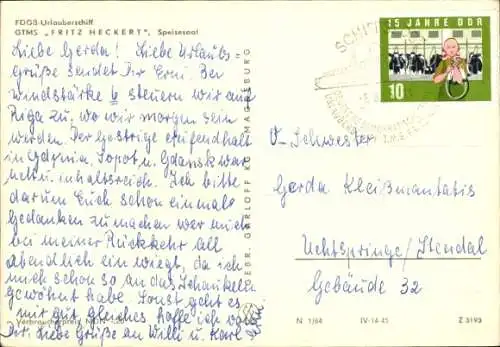 FDGB-Urlauberschiff
GTMS „FRITZ HECKERT", Speisesaal
Liebe Gerda! Liebe Urlaubs-
grüße sendet Dir Erni. Bei
Windstärke 6 steuern wir auf
Riga zu, wo wir morgen sein
werden. Der Gestrige
in Gdynia, Sopot u. Gdansk war
nett u. inhaltsreich. Ich bitte
darum Euch schon einmal
Gedanken zu machen wer mich
bei meiner Rückkehr all
abendlich ein wiegt, da ich
mich schon so an das Schaukeln
gewöhnt habe. Sonst geht es
mir gut gleiches hoffe ich von
Dir. Liebe Grüße an Willi u. Karl
Erni
Verbraucherpreis MDN 0,20
GEBR. GARLOFF KG MAGDEBURG
15 JAHRE DDR
10
Schwester
Gerda Kleißmantatis
Uchtspringe/Stendal
Gebäude 32
N 1/64 IV-14-45 Z 3193